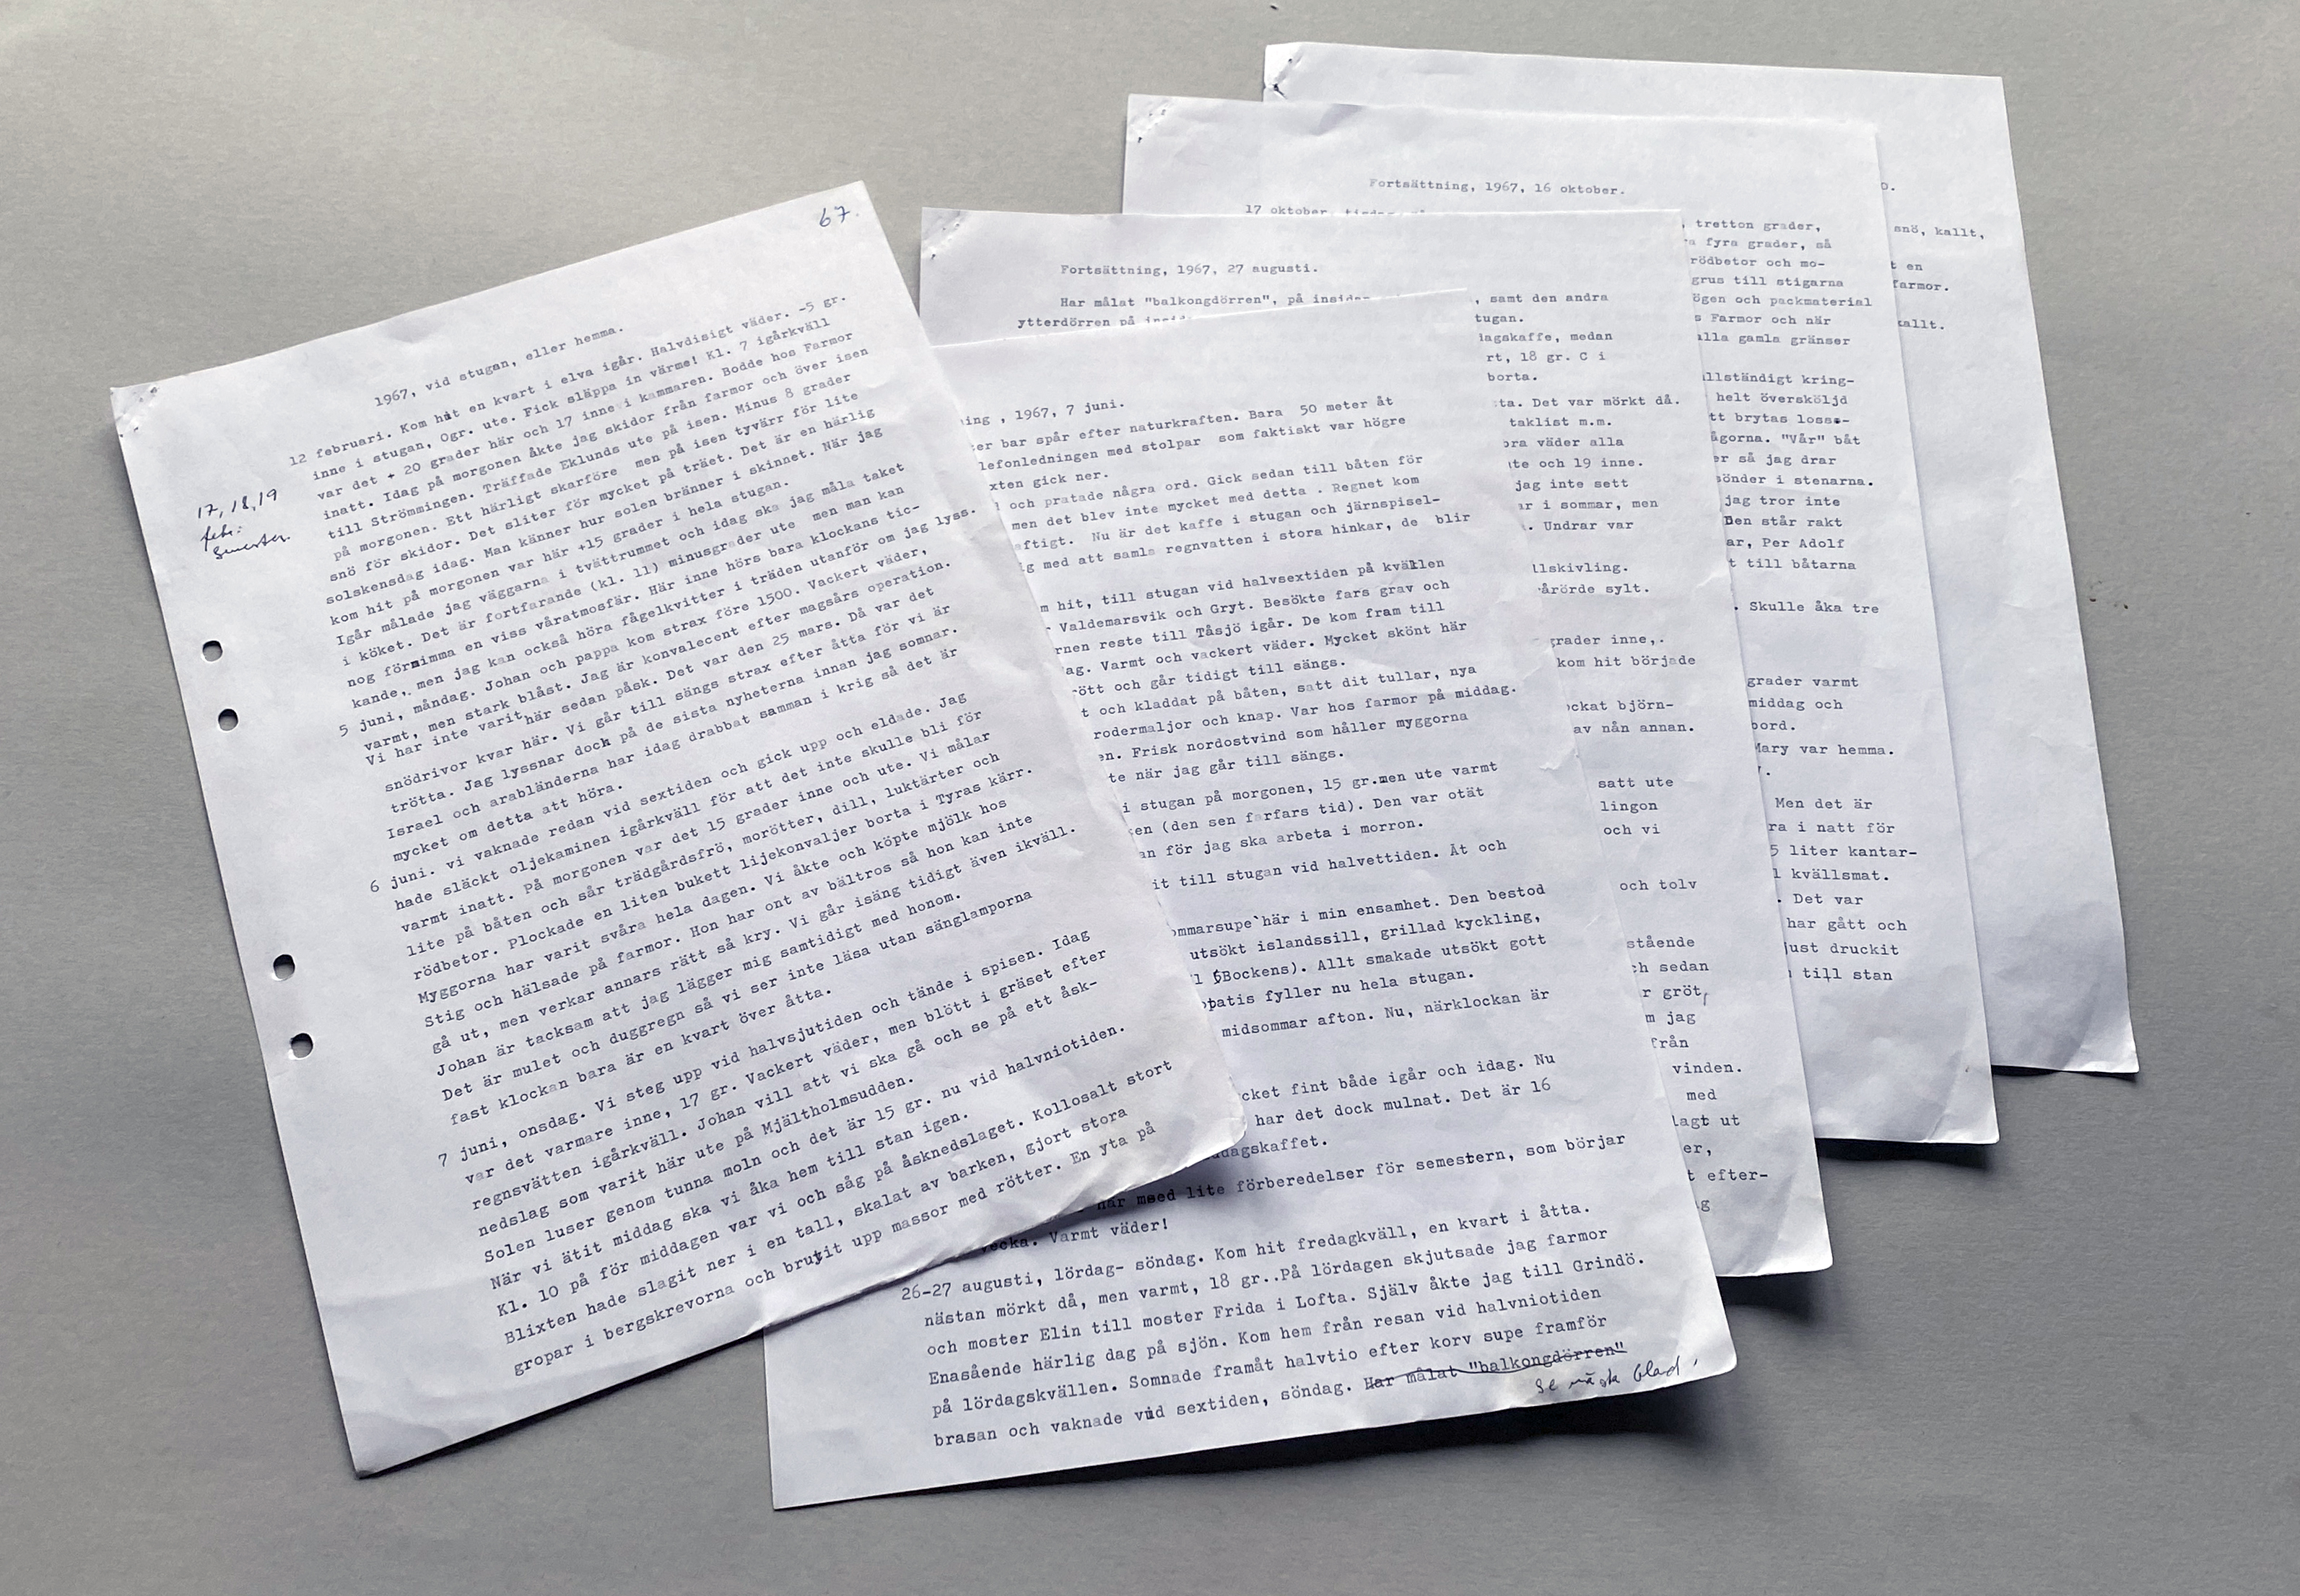 67.
1967, vid stugan, eller hemma.
12 februari. Kom hit en kvart i elva igår. Halvdisigt väder. -5 gr.
inne i stugan, 0gr. ute. Fick släppa in värme! Kl. 7 igårkväll
var det + 20 grader här och 17 inne i kammaren. Bodde hos Farmor
inatt. Idag på morgonen åkte jag skidor från farmor och över isen
till Strömmingen. Träffade Eklunds ute på isen. Minus 8 grader
på morgonen. Ett härligt skarföre men på isen tyvärr för lite
snö för skidor. Det sliter för mycket på träet. Det är en härlig
solskensdag idag. Man känner hur solen bränner i skinnet. När jag
kom hit på morgonen var här +15 grader i hela stugan.
Igår målade jag väggarna i tvättrummet och idag ska jag måla taket
i köket. Det är fortfarande (kl. 11) minusgrader ute men man kan
nog förnimma en viss våratmosfär. Här inne hörs bara klockans tic-
kande, men jag kan också höra fågelkvitter i träden utanför om jag lyss.
17, 18, 19
feb:
Semester.
5 juni, måndag. Johan och pappa kom strax före 1500. Vackert väder,
varmt, men stark blåst. Jag är konvalecent efter magsårs operation.
Vi har inte varit här sedan påsk. Det var den 25 mars. Då var det
snödrivor kvar här. Vi går till sängs strax efter åtta för vi är
trötta. Jag lyssnar dock på de sista nyheterna innan jag somnar.
Israel och arabländerna har idag drabbat samman i krig så det är
mycket om detta att höra.
6 juni. vi vaknade redan vid sextiden och gick upp och eldade. Jag
hade släckt oljekaminen igårkväll för att det inte skulle bli för
varmt inatt. På morgonen var det 15 grader inne och ute. Vi målar
lite på båten och sår trädgårdsfrö, morötter, dill, luktärter och
rödbetor. Plockade en liten bukett lijekonvaljer borta i Tyras kärr.
Myggorna har varit svåra hela dagen. Vi åkte och köpte mjölk hos
Stig och hälsade på farmor. Hon har ont av bältros så hon kan inte
gå ut, men verkar annars rätt så kry. Vi går isäng tidigt även ikväll.
Johan är tacksam att jag lägger mig samtidigt med honom.
Det är mulet och duggregn så vi ser inte läsa utan sänglamporna
fast klockan bara är en kvart över åtta.
7 juni, onsdag. Vi steg upp vid halvsjutiden och tände i spisen. Idag
var det varmare inne, 17 gr. Vackert väder, men blött i gräset efter
regnsvätten igårkväll. Johan vill att vi ska gå och se på ett åsk-
nedslag som varit här ute på Mjältholmsudden.
Solen luser genom tunna moln och det är 15 gr. nu vid halvniotiden.
När vi ätit middag ska vi åka hem till stan igen.
Kl. 10 på för middagen var vi och såg på åsknedslaget. Kollosalt stort
Blixten hade slagit ner i en tall, skalat av barken, gjort stora
gropar i bergskrevorna och brutit upp massor med rötter. En yta på
ning , 1967, 7 juni.
ter bar spår efter naturkraften. Bara 50 meter åt
lefonledningen med stolpar som faktiskt var högre
xten gick ner.
och pratade några ord. Gick sedan till båten för
men det blev inte mycket med detta . Regnet kom
ftigt. Nu är det kaffe i stugan och järnspisel-
g med att samla regnvatten i stora hinkar, de blir
m hit, till stugan vid halvsextiden på kvällen
Valdemarsvik och Gryt. Besökte fars grav och
rnen reste till Tåsjö igår. De kom fram till
ag. Varmt och vackert väder. Mycket skönt här
rött och går tidigt till sängs.
t och kladdat på båten, satt dit tullar, nya
rodermaljor och knap. Var hos farmor på middag.
en. Frisk nordostvind som håller myggorna
te när jag går till sängs.
i stugan på morgonen, 15 gr.men ute varmt
en (den sen farfars tid). Den var otät
an för jag ska arbeta i morron.
it till stugan vid halvettiden. Åt och
ommarsupe`här i min ensamhet. Den bestod
utsökt islandssill, grillad kyckling,
l (Bockens). Allt smakade utsökt gott
patis fyller nu hela stugan.
midsommar afton. Nu, närklockan är
cket fint både igår och idag. Nu
har det dock mulnat. Det är 16
dagskaffet.
här meed lite förberedelser för semestern, som börjar
vecka. Varmt väder!
26-27 augusti, lördag- söndag. Kom hit fredagkväll, en kvart i åtta.
nästan mörkt då, men varmt, 18 gr..På lördagen skjutsade jag farmor
och moster Elin till moster Frida i Lofta. Själv åkte jag till Grindö.
Enasående härlig dag på sjön. Kom hem från resan vid halvniotiden
på lördagskvällen. Somnade framåt halvtio efter korv supe framför
brasan och vaknade vid sextiden, söndag. Har målat "balkongdörren"
Se nästa blad.
Fortsättning, 1967, 27 augusti.
Har målat "balkongdörren", på insidan, samt den andra
ytterdörren på insid tugan.
dagskaffe, medan
rt, 18 gr. C i
borta.
ta. Det var mörkt då.
taklist m.m.
bra väder alla
te och 19 inne.
jag inte sett
ar i sommar, men
. Undrar var
llskivling.
rårörde sylt.
grader inne,.
kom hit började
ockat björn-
av nån annan.
satt ute
lingon
och vi
och tolv
stående
ch sedan
r gröt,
m jag
från
vinden.
med
lagt ut
er,
t efter-
g
Fortsättning, 1967, 16 oktober.
17 oktober, tisdag
tretton grader,
a fyra grader, så
rödbetor och mo-
grus till stigarna
ögen och packmaterial
s Farmor och när
alla gamla gränser
llständigt kring-
helt översköljd
tt brytas losse-
ågorna. "Vår" båt
er så jag drar
sönder i stenarna.
jag tror inte
Den står rakt
ar, Per Adolf
t till båtarna
. Skulle åka tre
grader varmt
middag och
bord.
Mary var hemma.
Men det är
ra i natt för
5 liter kantar-
l kvällsmat.
. Det var
har gått och
just druckit
till stan
snö, kallt,
t en
farmor.
kallt.